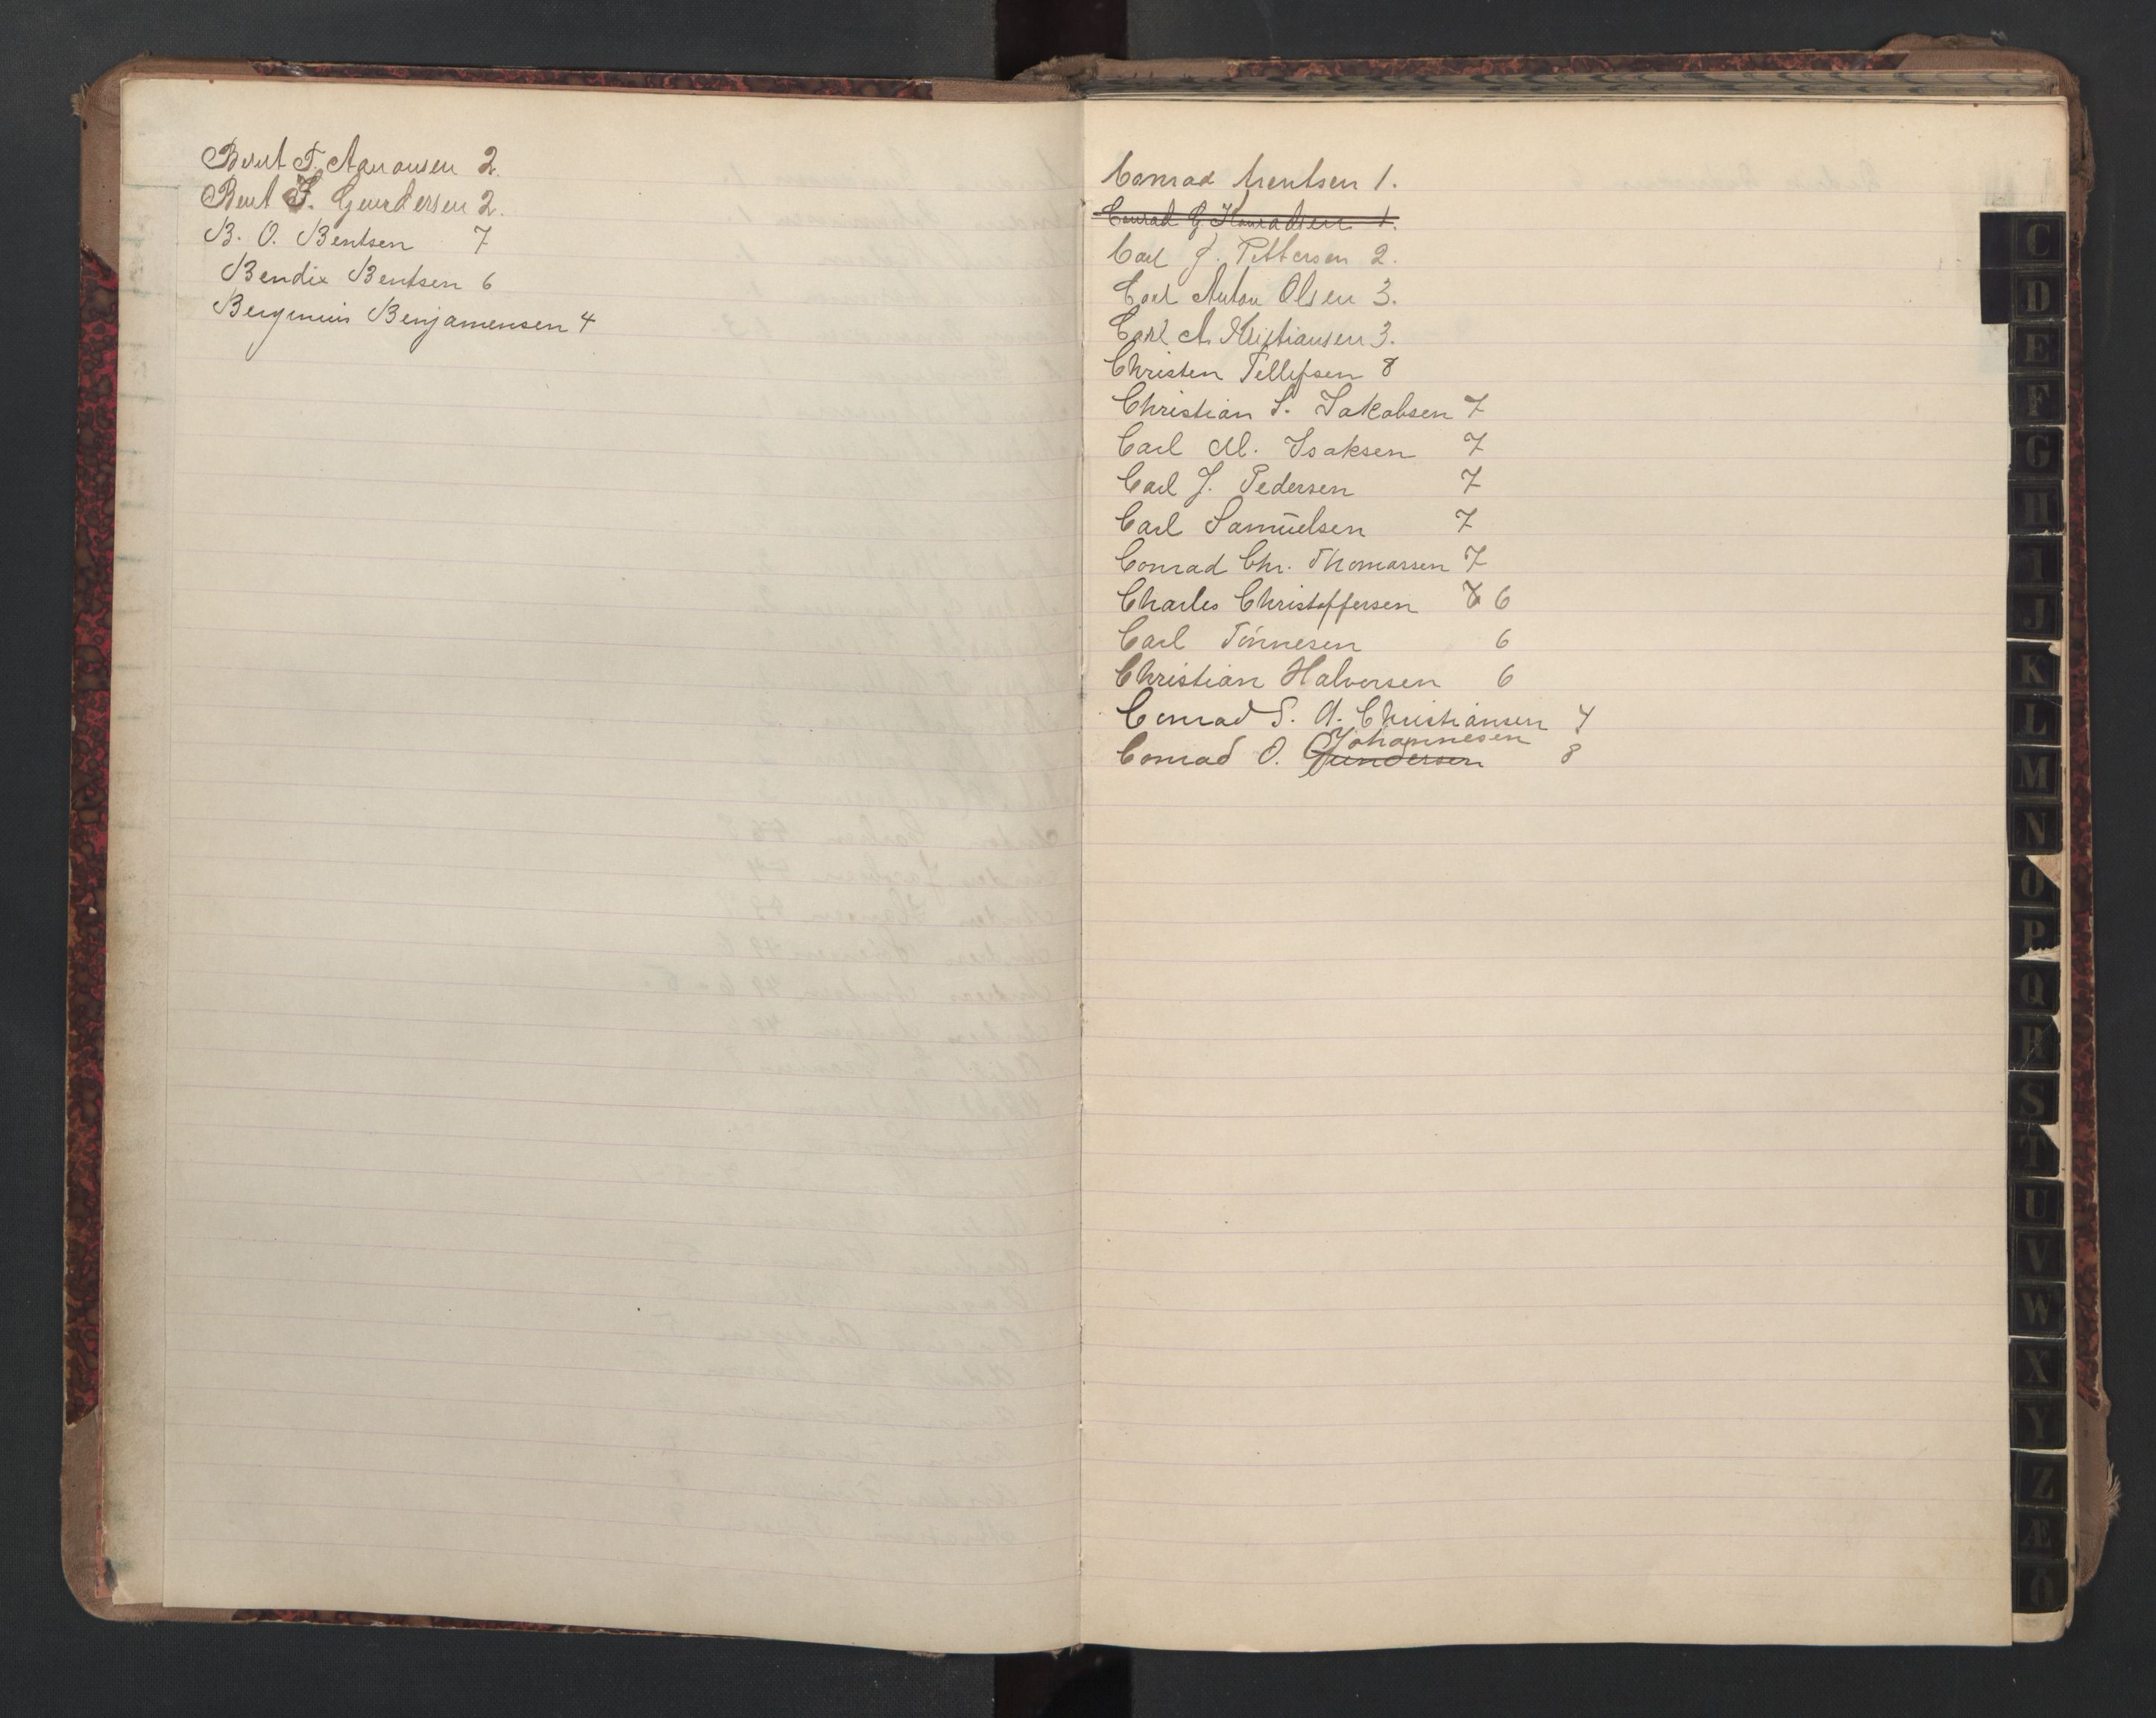 Bernt T. Aanonsen 2.
Bent S. Gundersen 2.
B. O. Bentsen 7
Bendix Bentsen 6
Benjamensen 4
Conrad Arentsen 1.
Conrad G. Konradsen 1.
Carl J. Pettersen 2.
Carl Anton Olsen 3.
Carl A. Kristiansen 3.
Christen Tellefsen 8
Christian S. Jakobsen 7
Carl M. Isaksen 7
Carl J. Pedersen 7
Carl Samuelsen 7
Conrad Chr. Thomassen 7
Charles Christoffersen 6
Carl Tönnesen 6
Christian Halvorsen 6
Conrad S. A. Christiansen 4
Johannesen
Conrad O. Gundersen 8
C
D
E
F
G
H
I
J
K
L
M
N
O
P
Q
R
S
T
U
V
W
X
Y
Z
Æ
Ö